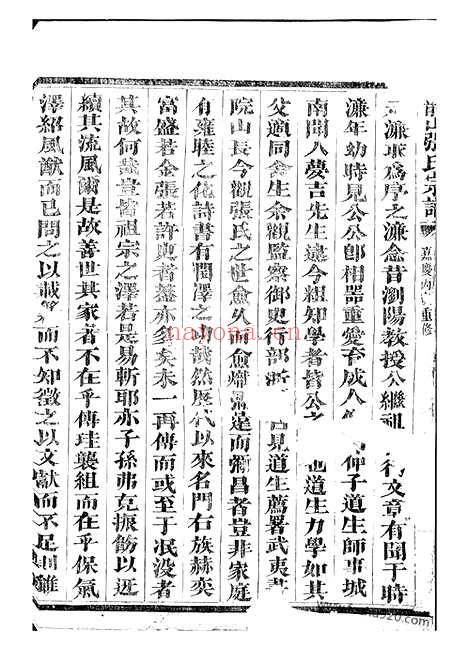 前山張氏宗譜 嘉慶丙 重修
濂耳為序之濂念昔瀏陽教授公繼祖 文章有聞于時
濂年幼時見公公即相器重愛育成人 仲子道生師事城
南聞人夢吉先生遠今組知學者皆公之 也道生力學如其
父適同舍生余觀監察御史行部浙 見道生薦署武夷書
院山長今觀張氏之世愈久而愈熾 達而彌昌者豈非家庭
有雍睦之化詩書有潤澤之功哉然歷代以來名門右族赫奕
富盛若金張若許史者蓋亦多矣未一再傳而或至于泯没者
其故何哉豈皆祖宗之澤若是易斬耶亦子孫弗克振飭以迓
續其流風爾是故善世其家者不在乎傳珪襲組而在乎保氣
澤紹風猷而已問之以載 而不知徵之以文獻而不足 雖
nayona.cn
www.520920.com